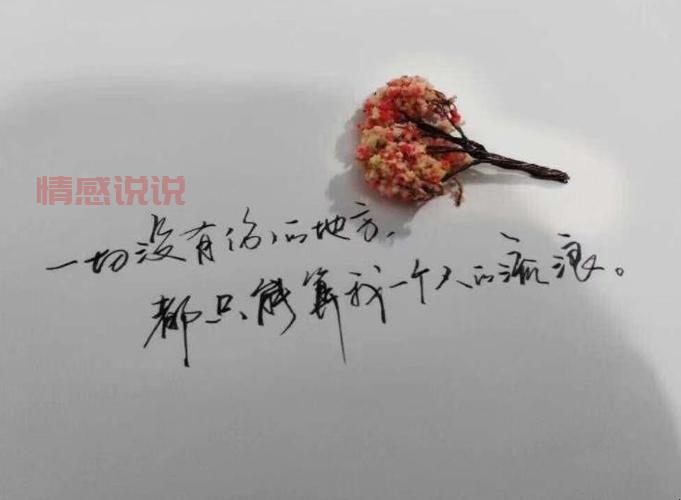 情感说说
一切没有你的地方,
都只能算我一个人的流浪。